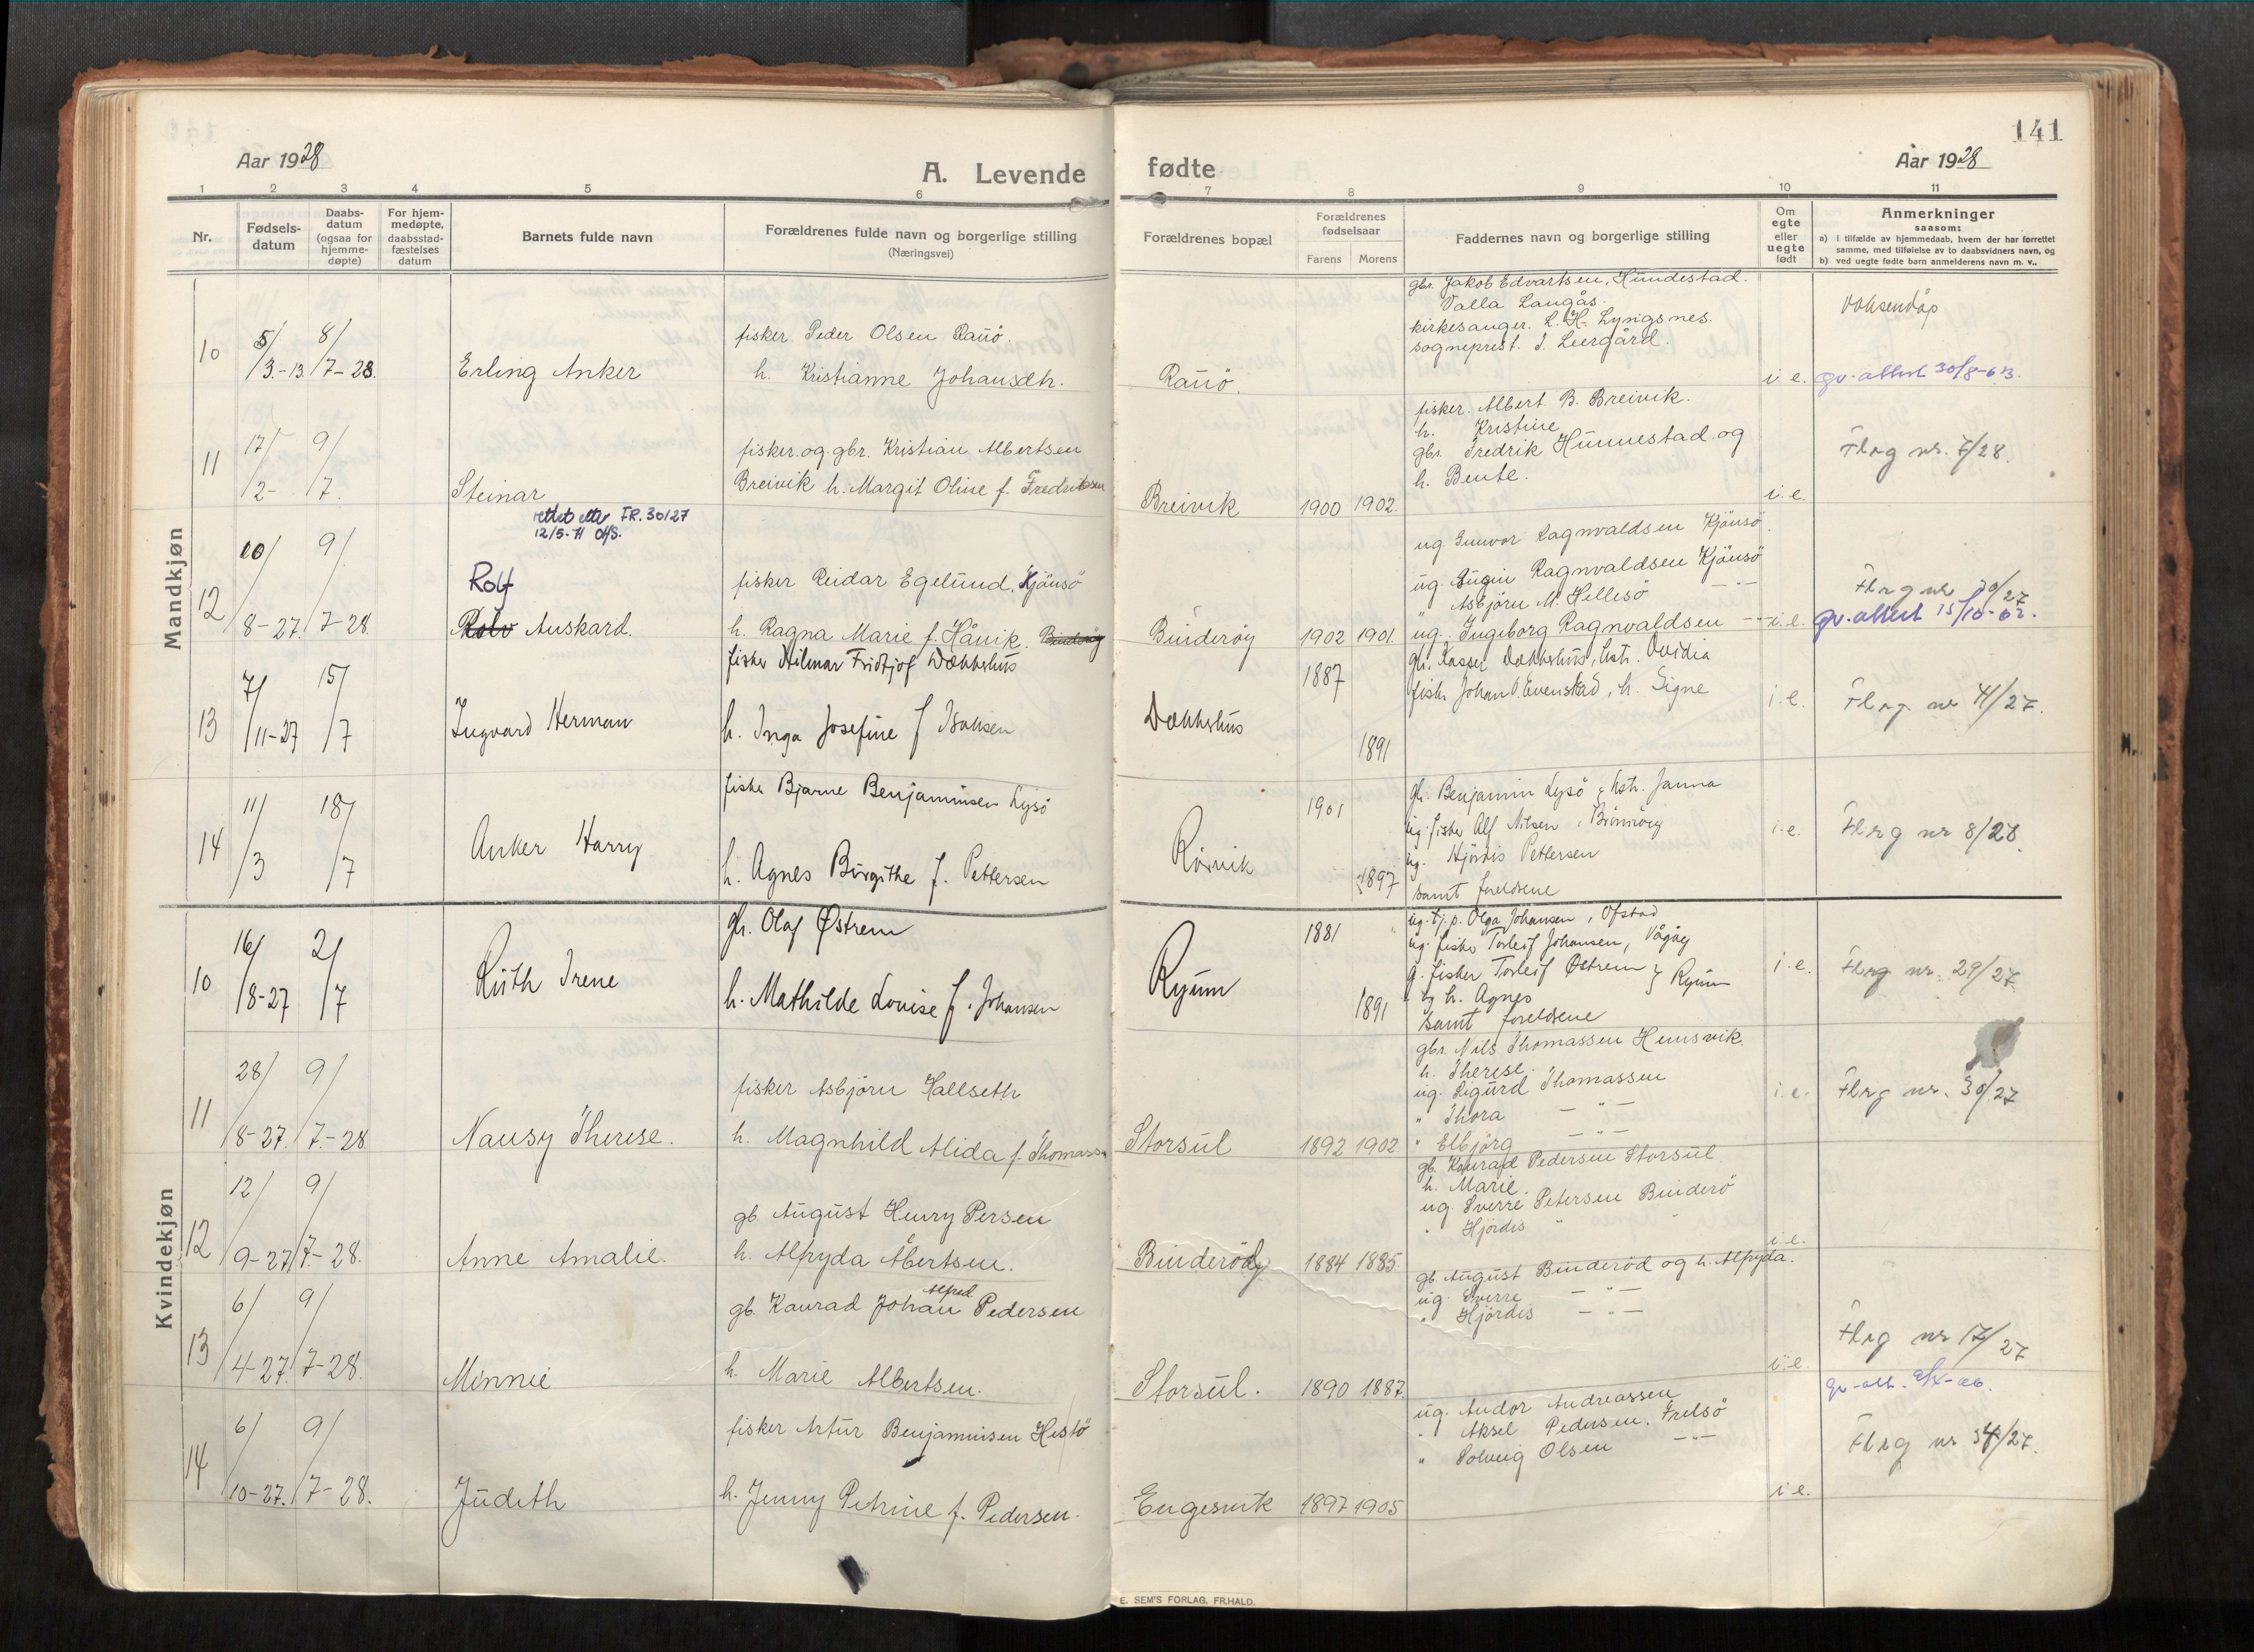 141
Aar 1928
A. Levende fødte
Aar 1928
1 2 3 4 5 6 7 8 9 10 11
Nr.
Fødsels-
datum
Daabs-
datum
(ogsaa for
hjemme-
døpte)
For hjem-
medøpte,
daabsstad-
fæstelses
datum
Barnets fulde navn
Forældrenes fulde navn og borgerlige stilling
(Næringsvei)
Forældrenes bopæl
Forældrenes
fødselsaar
Farens Morens
Faddernes navn og borgerlige stilling
Om
egte
eller
uegte
født
Anmerkninger
saasom:
a) i tilfælde av hjemmedaab, hvem der har forrettet
samme, med tilføielse av to daabsvidners navn, og
b) ved uegte fødte barn anmelderens navn m. v..
Mandkjøn
10
5/3.-13.
8/7-28.
Erling Anker
fisker Peder Olsen Rauö.
h. Kristianne Johansdtr.
Rauö.
gbr. Jakob Edvartsen, Hundestad.
Valla Langås.
kirkesanger. L. H. Lyngsnes.
sogneprest. J. Leergård.
i. e.
Voksendåp
gv. attest 30/8-63.
11
17/2-
9/7.
Steinar
fisker og gbr. Kristian Albertsen
Breivik h. Margit Oline f. Fredriksen
Breivik
1900 1902.
fisker. Albert B. Breivik.
h. Kristine
gbr. Fredrik Hunnestad og
h. Bente.
i. e.
Flrg nr. 7/28.
12
20/8-27.
9/7-28.
rettet etter FR. 30/27
12/5-71 OHS.
Rolf
Rolv Anskard.
fisker Reidar Egelund, Kjönsö
h. Ragna Marie f. Håvik. Binderöy
Binderöy
1902 1901.
ug. Gunvor Ragnvaldsen Kjönsö.
ug. Ragnvaldsen Kjönsö
" Asbjörn M. Hellesö -"-
ug. Ingeborg Ragnvaldsen -"-
i. e.
Flrg nr 30/27
gv. attest 15/10-62.
13
7/11-27
15/7
Ingvard Herman
fisker Hilmar Fridtjof Dækkerhus
h. Inga Josefine f Isaksen
Dækkerhus
1887
1891
gbr. Kasper Dækkerhus, hstr. Ovidia
fisker Johan O. Evenstad, h. Signe
i. e.
Flrg nr 41/27.
14
11/3
18/7
Anker Harry
fisker Bjarne Benjaminsen Lysö
h. Agnes Birgithe f. Pettersen
Rörvik
1901
1897
gbr. Benjamin Lysö & hstr. Janna
ug. fisker Alf Nilsen, Brönnöy
ug. Hjördis Pettersen
samt foreldrene
i. e.
Flrg nr 8/28.
Kvindekjøn
10
16/8-27
2/7
Ruth Irene
gbr. Olaf Østrem
h. Mathilde Lovise f. Johansen
Ryum
1881
1891
ug. tj.p. Olga Johansen, Ofstad
ug. fisker Torleif Johansen, Vågöy
g. fisker Torleif Østrem } Ryum
og h. Agnes
samt foreldrene
i. e.
Flrg nr. 29/27.
11
28/8-27.
9/7-28
Nansy Therese.
fisker Asbjörn Hallseth
h. Magnhild Alida f. Thomassen
Storsul
1892 1902.
gbr. Nils Thomassen Humsvik.
h. Therese.
ug. Sigurd Thomassen
" Thora -"-
" Elbjörg -"-
i. e.
Flrg nr. 30/27
12
12/9-27.
9/7-28.
Anne Amalie.
gb. August Henry Persen
h. Alfryda Albertsen.
Binderöy
1884 1885.
gb. Konrad Pedersen Storsul.
h. Marie.
ug. Sverre Petersen Binderö
" Hjördis "
i. e.
13
6/4-27.
9/7-28.
Minnie
gb. Konrad Johan Alfred Pedersen
h. Marie Albertsen.
Storsul.
1890 1887.
gb. August Binderöd og h. Alfryda.
ug. Sverre -"-
" Hjördis -"-
i. e.
Flrg nr 17/27
14
6/10-27.
9/7-28.
Judith
fisker Artur Benjaminsen Hestö
h. Jenny Petrine f. Pedersen.
Engesvik
1897 1905
ug. Andor Andreassen
" Aksel Pedersen. Frelsö
" Solveig Olsen -"-
i. e.
Flrg nr 34/27.
E. SEM'S FORLAG, FR.HALD.